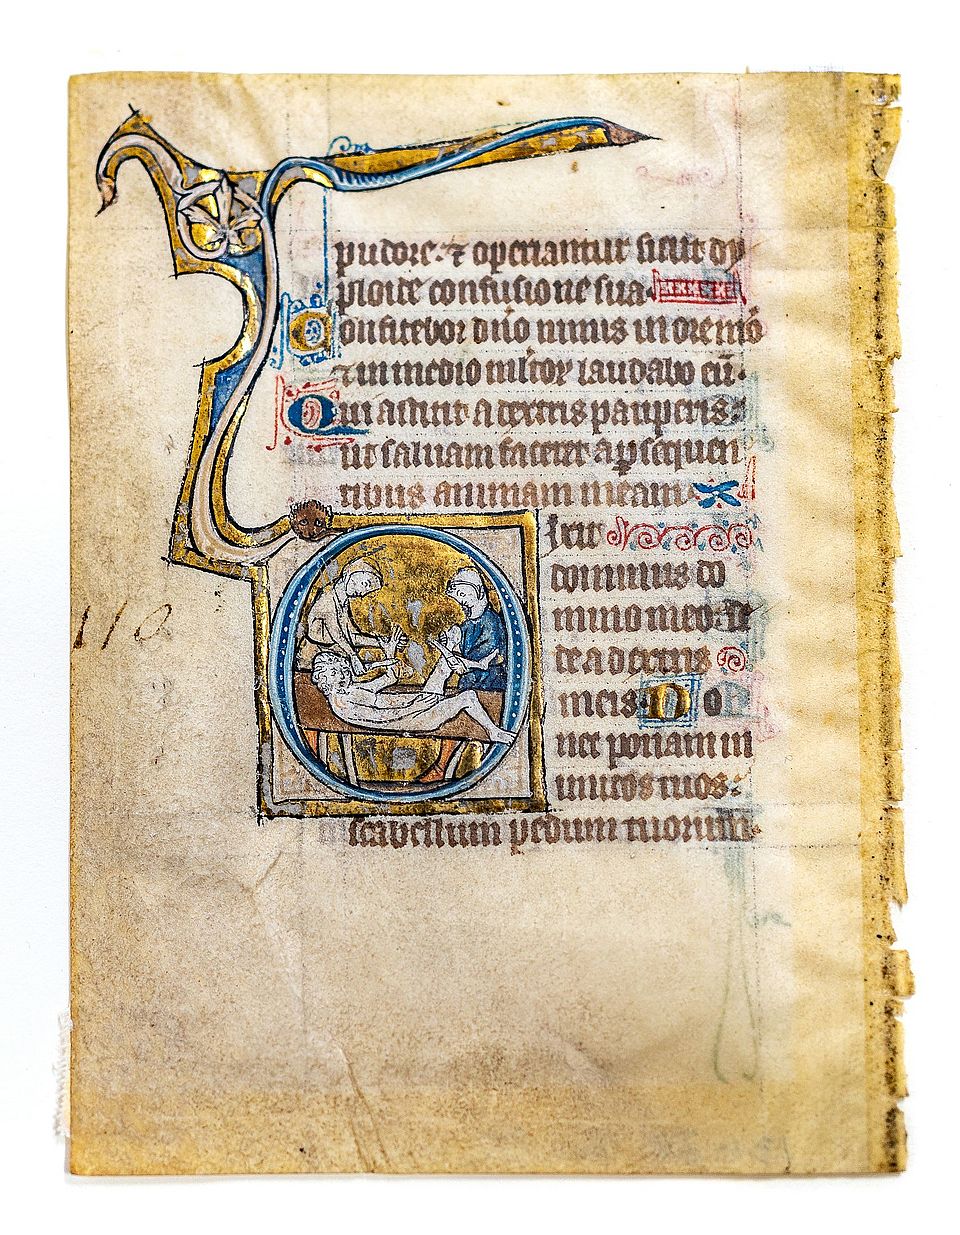 pudore· ⁊ operiantur sicut dy
ploide confusione sua
Confitebor dño nimis in ore mo
⁊ in medio mltoꝝ laudabo eū·
Qui astitit a dextris pauperis:
ut salvam faceret a ꝑsequen
tibus animam meam
Dixit
dominus do
mino meo· se
de a dextris
meis· Do
nec ponam in
imicos tuos:
scabellum pedum tuorum
110